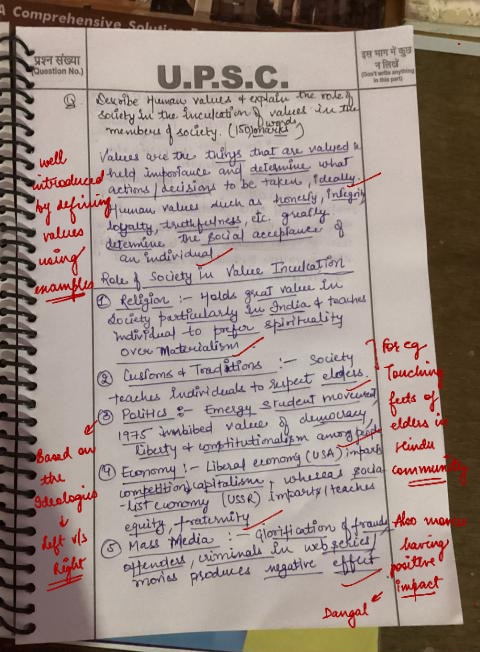 A Comprehensive Solution
प्रश्न संख्या
(Question No.)
U.P.S.C.
इस भाग में कुछ
न लिखें
(Don't write anything
in this part)
Q. Describe Human values & explain the role of
society in the inculcation of values in the
members of society. (150 words)
Values are the things that are valued &
held importance and determine what
actions/decisions to be taken, ideally.
Human values such as honesty, integrity
loyalty, truthfulness, etc. greatly
determine the social acceptance of
an individual
Role of Society in Value Inculcation
① Religion :- Holds great value in
society particularly in India & teaches
individual to prefer spirituality
over Materialism
② Customs & Traditions :- Society
teaches individuals to respect elders.
③ Politics :- Emergy student movement
1975 imbibed values of democracy,
Liberty & constitutionalism among people
④ Economy :- Liberal economy (USA) imparts
competition, capitalism, whereas social
-list economy (USSR) imparts/teaches
equity, fraternity
⑤ Mass Media :- Glorification of frauds,
offenders, criminals in web series/
movies produces negative effect
well
introduced
by defining
values
using
examples
Based on
the
Ideologies
Left v/s
Right
For eg
Touching
feets of
elders in
Hindu
community
Also movies
having
positive
impact
Dangal